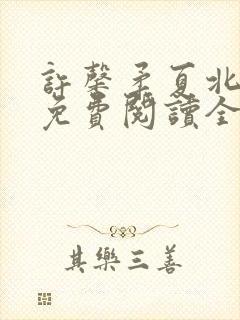 許馨矛夏北
免費閱讀全
其樂三善